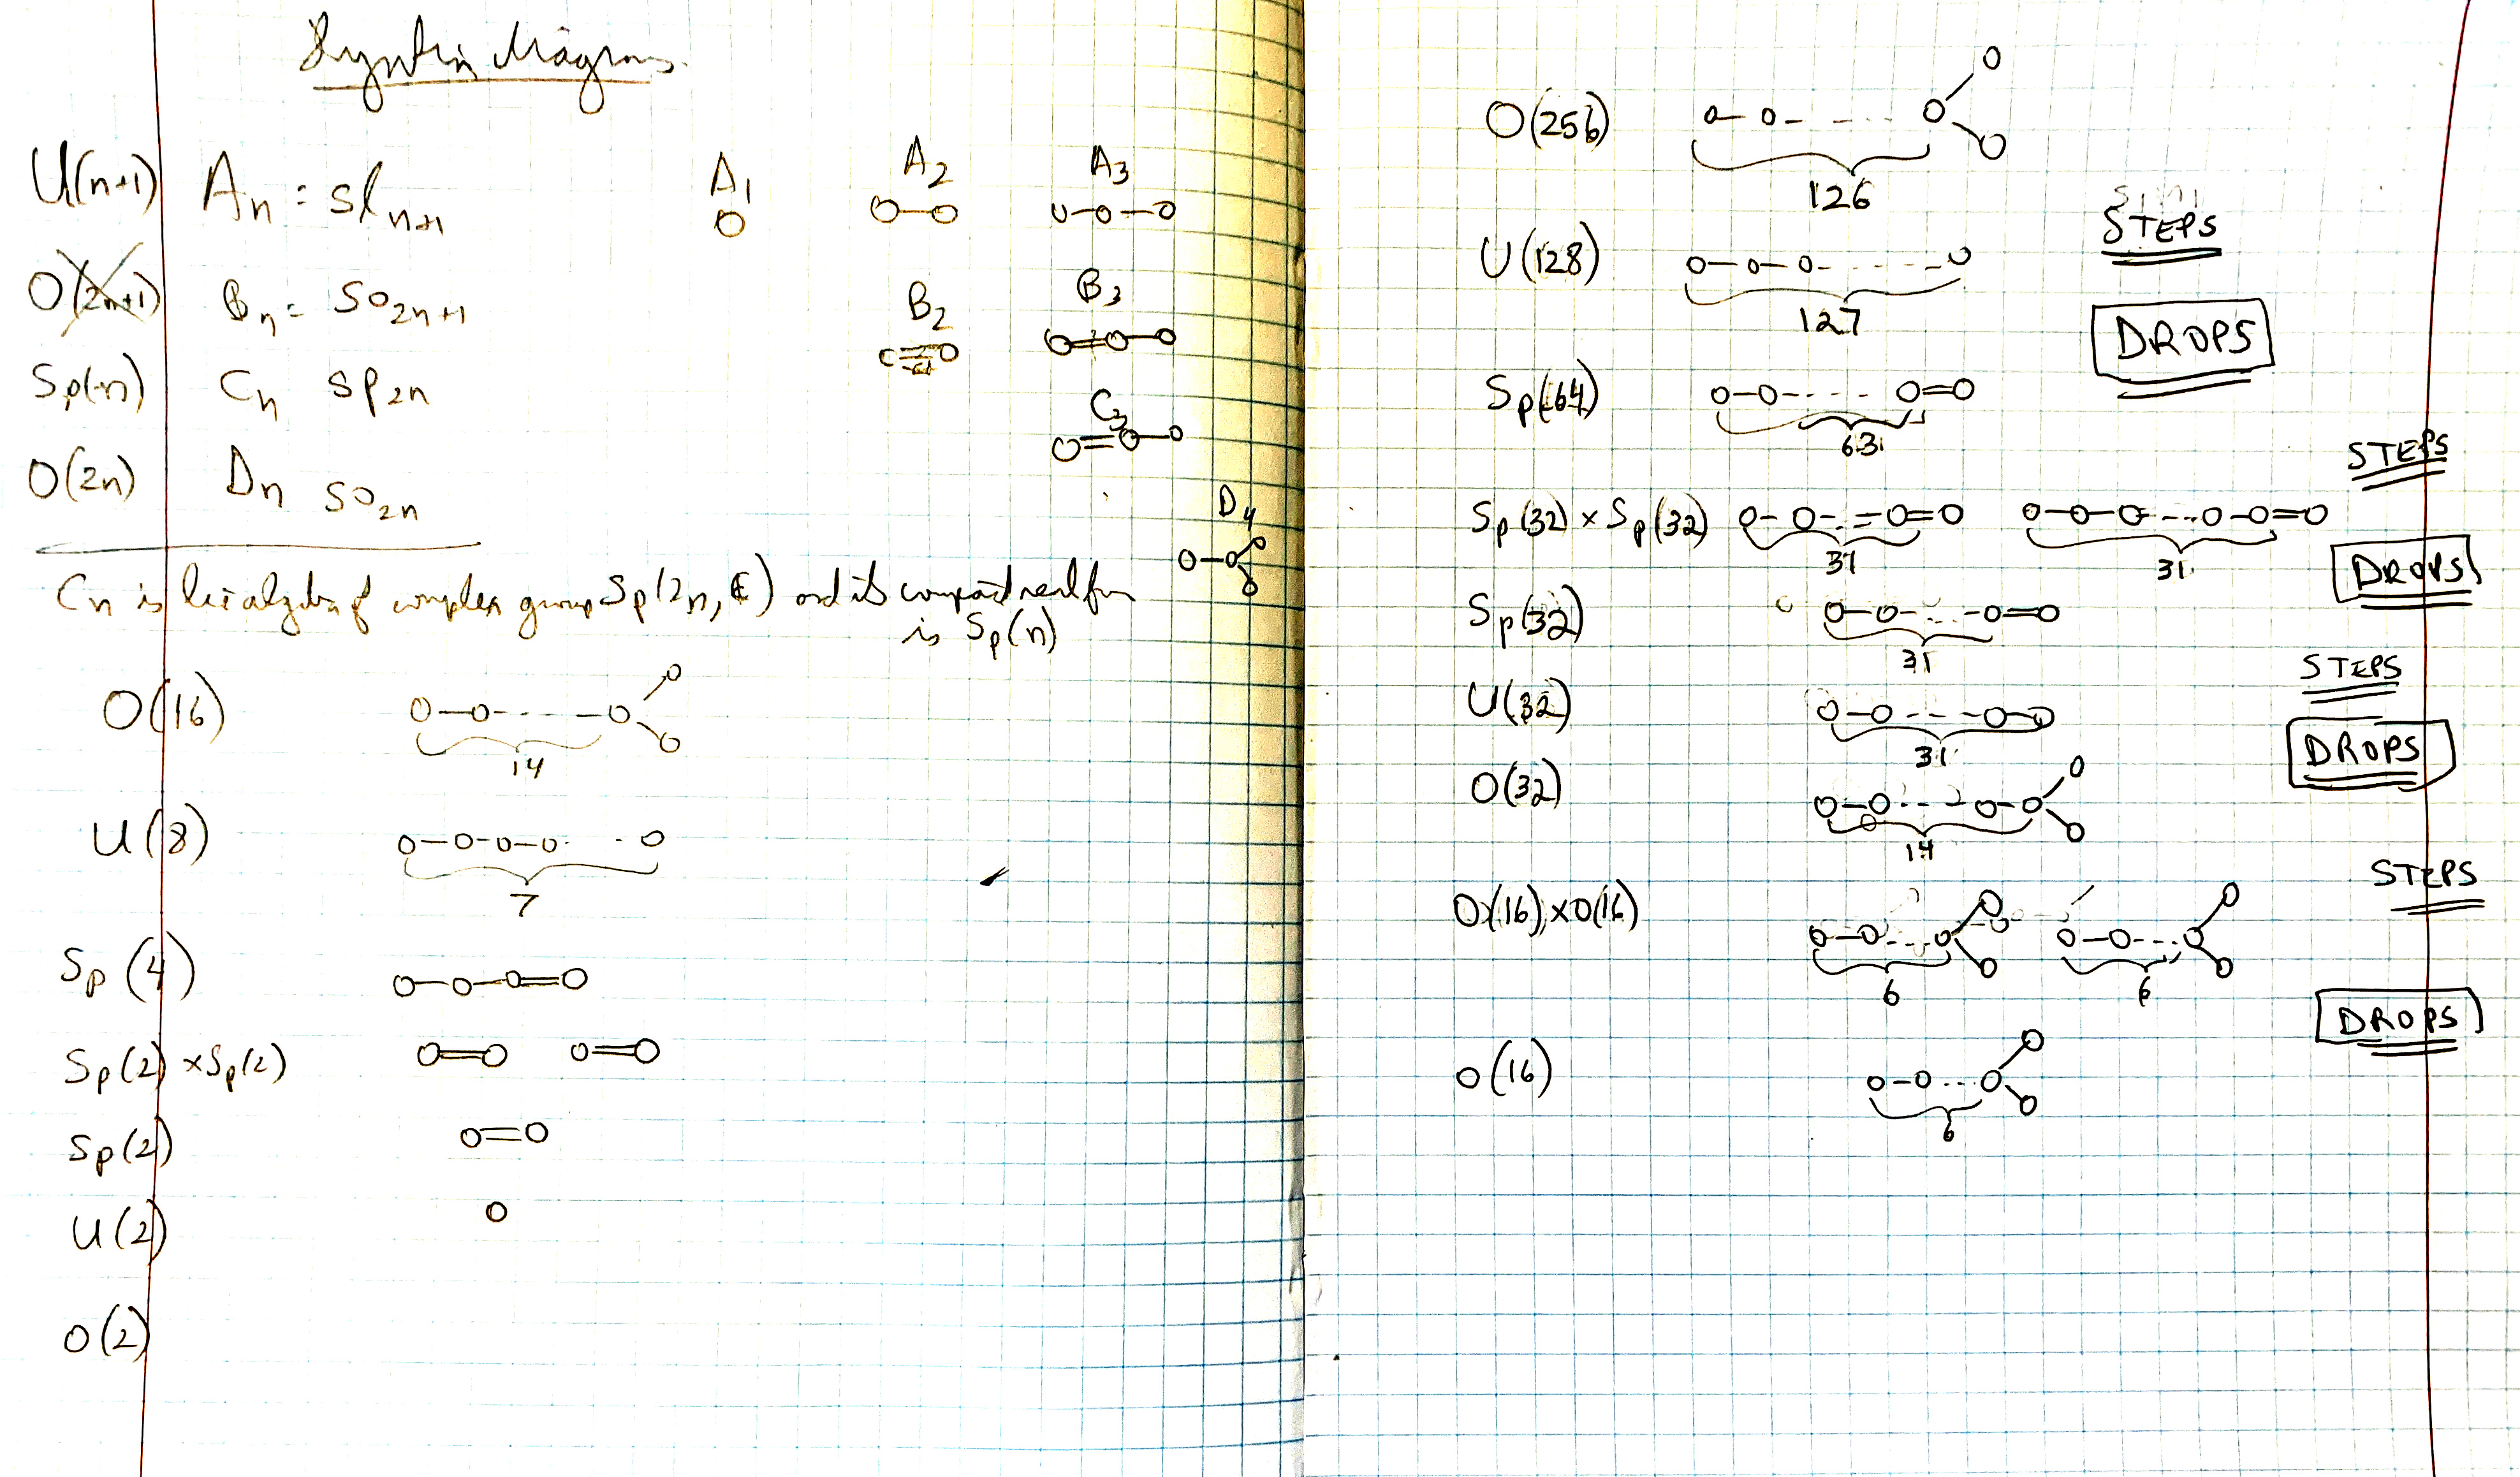 Dynkin Diagrams
U(n+1) An = sl n+1 A1 A2 A3
O(2n+1) Bn = so 2n+1 B2 B3
Sp(n) Cn sp 2n C3
O(2n) Dn so 2n D4
Cn is lie algebra of complex group Sp(2n, C) and its compact real form
is Sp(n)
O(16)
14
U(8)
7
Sp(4)
Sp(2) × Sp(2)
Sp(2)
U(2)
O(2)
O(256)
126
STEPS
U(128)
127
DROPS
Sp(64)
63
STEPS
Sp(32) × Sp(32)
31 31
DROPS
Sp(32)
31
STEPS
U(32)
31
DROPS
O(32)
14
STEPS
O(16) × O(16)
6 6
DROPS
O(16)
6